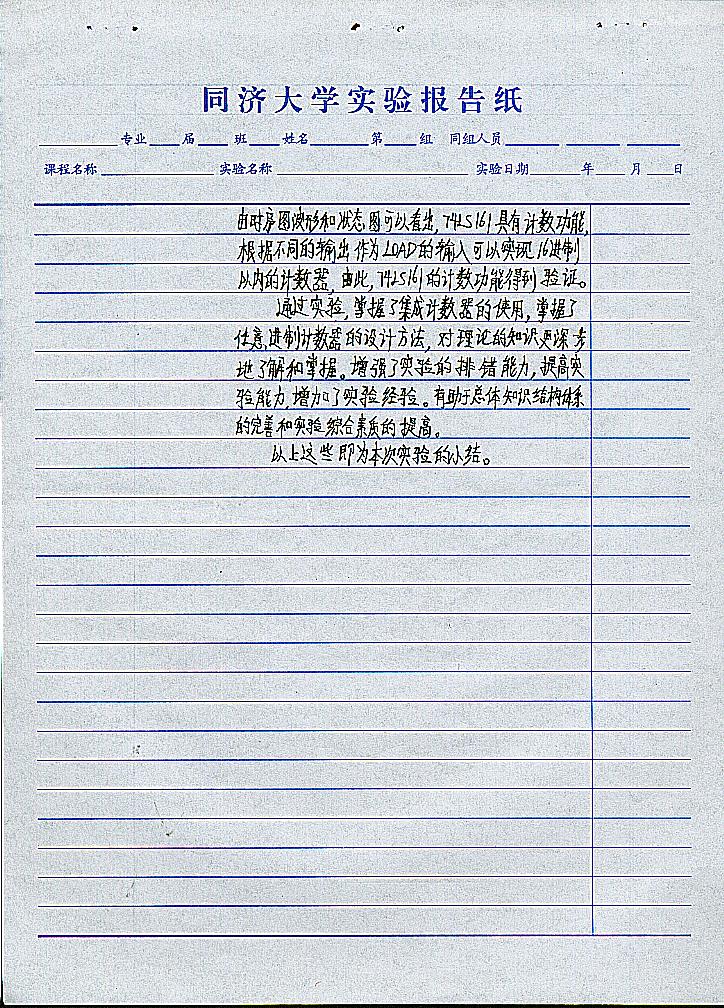 同济大学实验报告纸
专业 届 班 姓名 第 组 同组人员
课程名称 实验名称 实验日期 年 月 日
由时序图波形和状态图可以看出,74LS161具有计数功能,
根据不同的输出作为LOAD的输入可以实现16进制
以内的计数器,由此,74LS161的计数功能得到验证。
通过实验,掌握了集成计数器的使用,掌握了
任意进制计数器的设计方法,对理论的知识更深步
地了解和掌握。增强了实验的排错能力,提高实
验能力,增加了实验经验。有助于总体知识结构体系
的完善和实验综合素质的提高。
以上这些即为本次实验的小结。